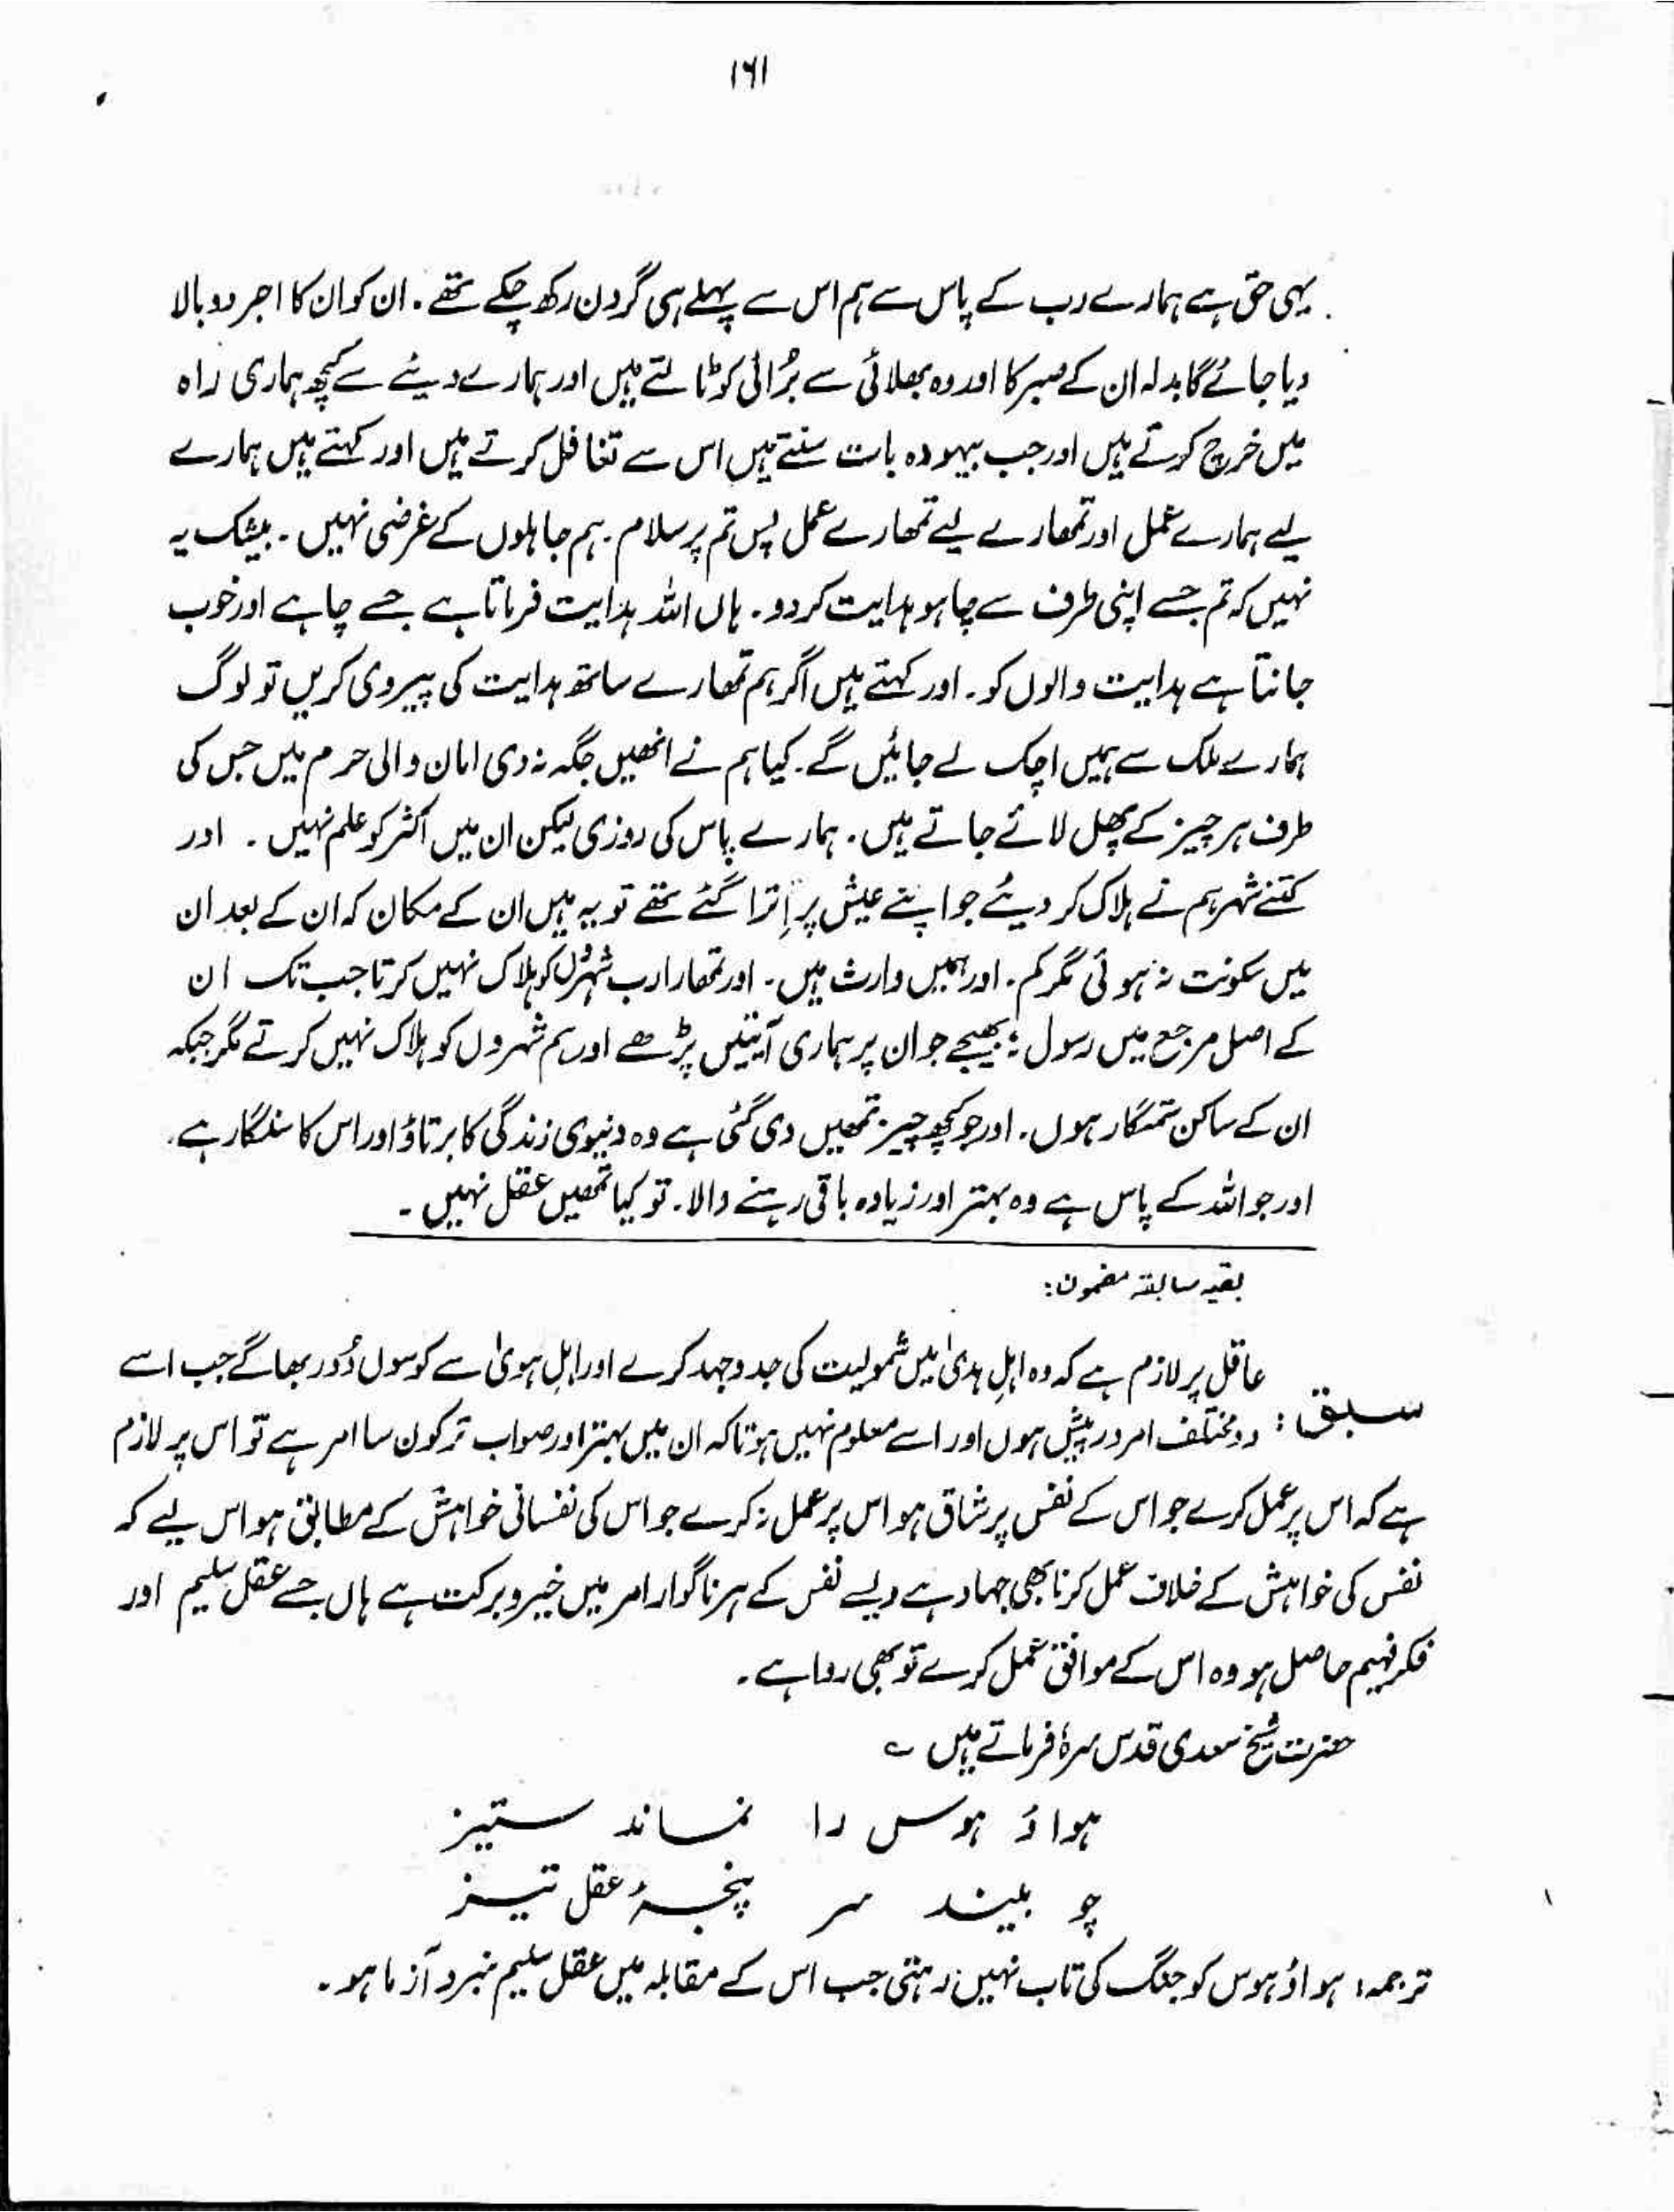 ۱۶۱
یہی حق ہے ہمارے رب کے پاس سے ہم اس سے پہلے ہی گردن رکھ چکے تھے۔ ان کو ان کا اجر دوبالا
دیا جائے گا بدلہ ان کے صبر کا اور وہ بھلائی سے بُرائی کو ٹالتے ہیں اور ہمارے دیئے سے کچھ ہماری راہ
میں خرچ کرتے ہیں اور جب بیہودہ بات سنتے ہیں اس سے تغافل کرتے ہیں اور کہتے ہیں ہمارے
لیے ہمارے عمل اور تمھارے لیے تمھارے عمل پس تم پر سلام۔ ہم جاہلوں کے غرضی نہیں۔ بیشک یہ
نہیں کہ تم جسے اپنی طرف سے چاہو ہدایت کر دو۔ ہاں اللہ ہدایت فرماتا ہے جسے چاہے اور خوب
جانتا ہے ہدایت والوں کو۔ اور کہتے ہیں اگر ہم تمھارے ساتھ ہدایت کی پیروی کریں تو لوگ
ہمارے ملک سے ہمیں اچک لے جائیں گے۔ کیا ہم نے انھیں جگہ نہ دی امان والی حرم میں جس کی
طرف ہر چیز کے پھل لائے جاتے ہیں۔ ہمارے پاس کی روزی لیکن ان میں اکثر کو علم نہیں۔ اور
کتنے شہر ہم نے ہلاک کر دیئے جو اپنے عیش پر اِترا گئے تھے تو یہ ہیں ان کے مکان کہ ان کے بعد ان
میں سکونت نہ ہوئی مگر کم۔ اور ہمیں وارث ہیں۔ اور تمھارا رب شہروں کو ہلاک نہیں کرتا جب تک ان
کے اصل مرجع میں رسول نہ بھیجے جو ان پر ہماری آیتیں پڑھے اور ہم شہروں کو ہلاک نہیں کرتے مگر جبکہ
ان کے ساکن ستمگار ہوں۔ اور جو کچھ چیز تمھیں دی گئی ہے وہ دنیوی زندگی کا برتاؤ اور اس کا سنگار ہے۔
اور جو اللہ کے پاس ہے وہ بہتر اور زیادہ باقی رہنے والا۔ تو کیا تمھیں عقل نہیں۔
بقیہ سابقہ مضمون:
عاقل پر لازم ہے کہ وہ اہلِ ہدیٰ میں شمولیت کی جدوجہد کرے اور اہلِ ہویٰ سے کوسوں دُور بھاگے جب اسے
سبق: دو مختلف امر درپیش ہوں اور اسے معلوم نہیں ہوتا کہ ان میں بہتر اور صواب تر کون سا امر ہے تو اس پر لازم
ہے کہ اس پر عمل کرے جو اس کے نفس پر شاق ہو اس پر عمل نہ کرے جو اس کی نفسانی خواہش کے مطابق ہو اس لیے کہ
نفس کی خواہش کے خلاف عمل کرنا بھی جہاد ہے ویسے نفس کے ہر ناگوار امر میں خیر و برکت ہے ہاں جسے عقل سلیم اور
فکر فہیم حاصل ہو وہ اس کے موافق عمل کرے تو بھی روا ہے۔
حضرت شیخ سعدی قدس سرہٗ فرماتے ہیں ؎
ہواؤ ہوس را نماند ستیز
چو بیند سر پنجۂ عقل تیز
ترجمہ: ہواؤ ہوس کو جنگ کی تاب نہیں رہتی جب اس کے مقابلہ میں عقل سلیم نبرد آزما ہو۔